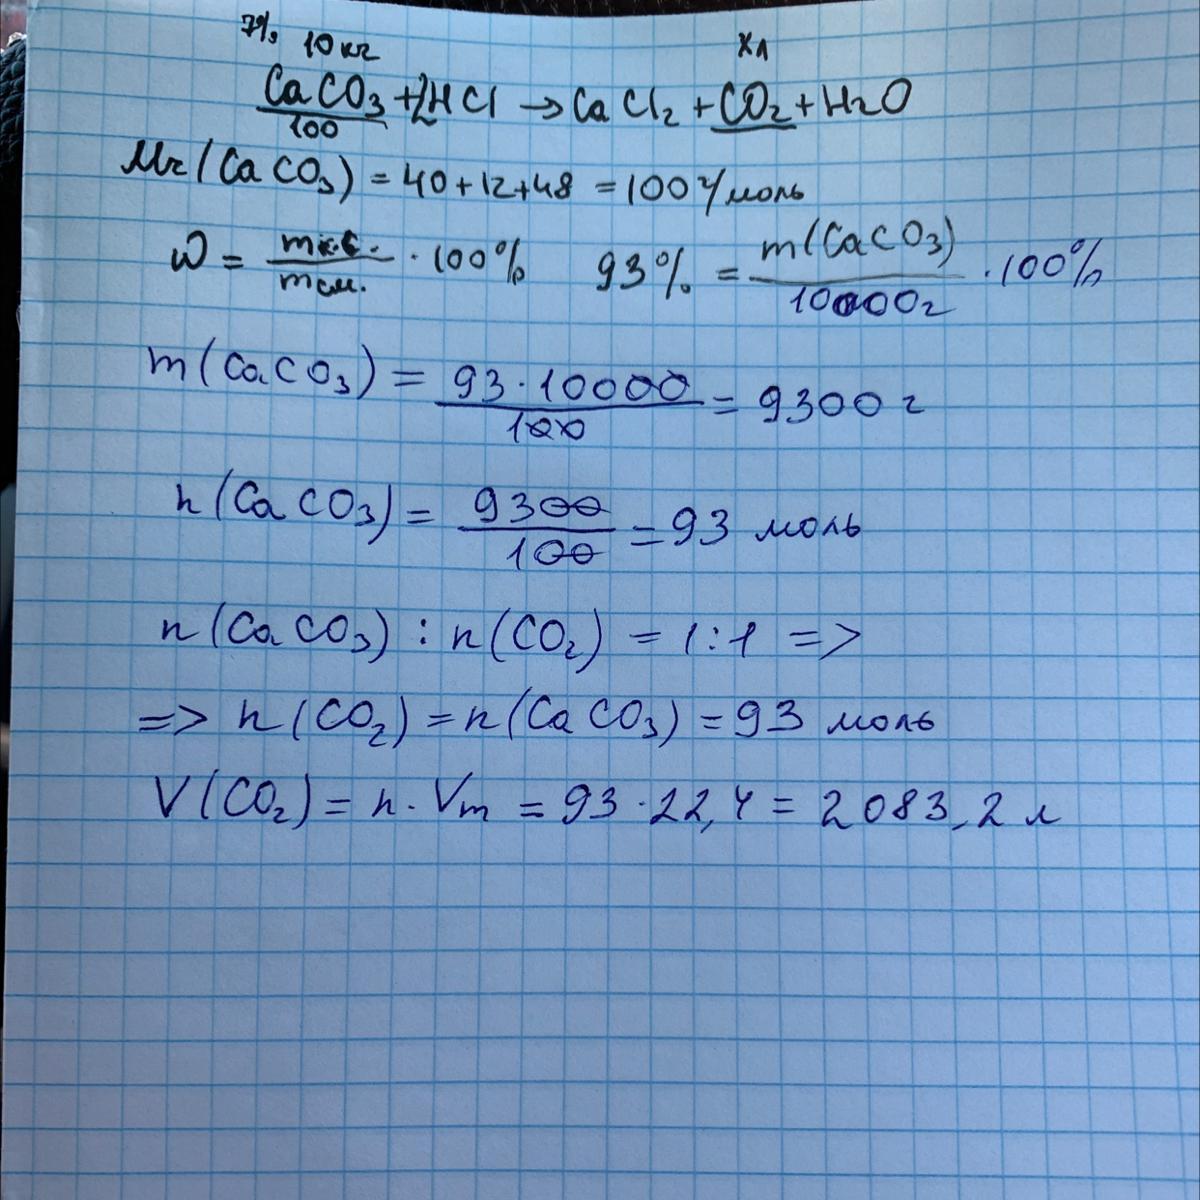 7% 10 кг х л
CaCO₃ + 2HCl → CaCl₂ + CO₂ + H₂O
100
Mr(CaCO₃) = 40+12+48 = 100 г/моль
ω = m в. / m см. · 100% 93% = m(CaCO₃) / 10000г · 100%
m(CaCO₃) = 93·10000 / 100 = 9300 г
n(CaCO₃) = 9300 / 100 = 93 моль
n(CaCO₃) : n(CO₂) = 1:1 =>
=> n(CO₂) = n(CaCO₃) = 93 моль
V(CO₂) = n · Vm = 93·22,4 = 2083,2 л